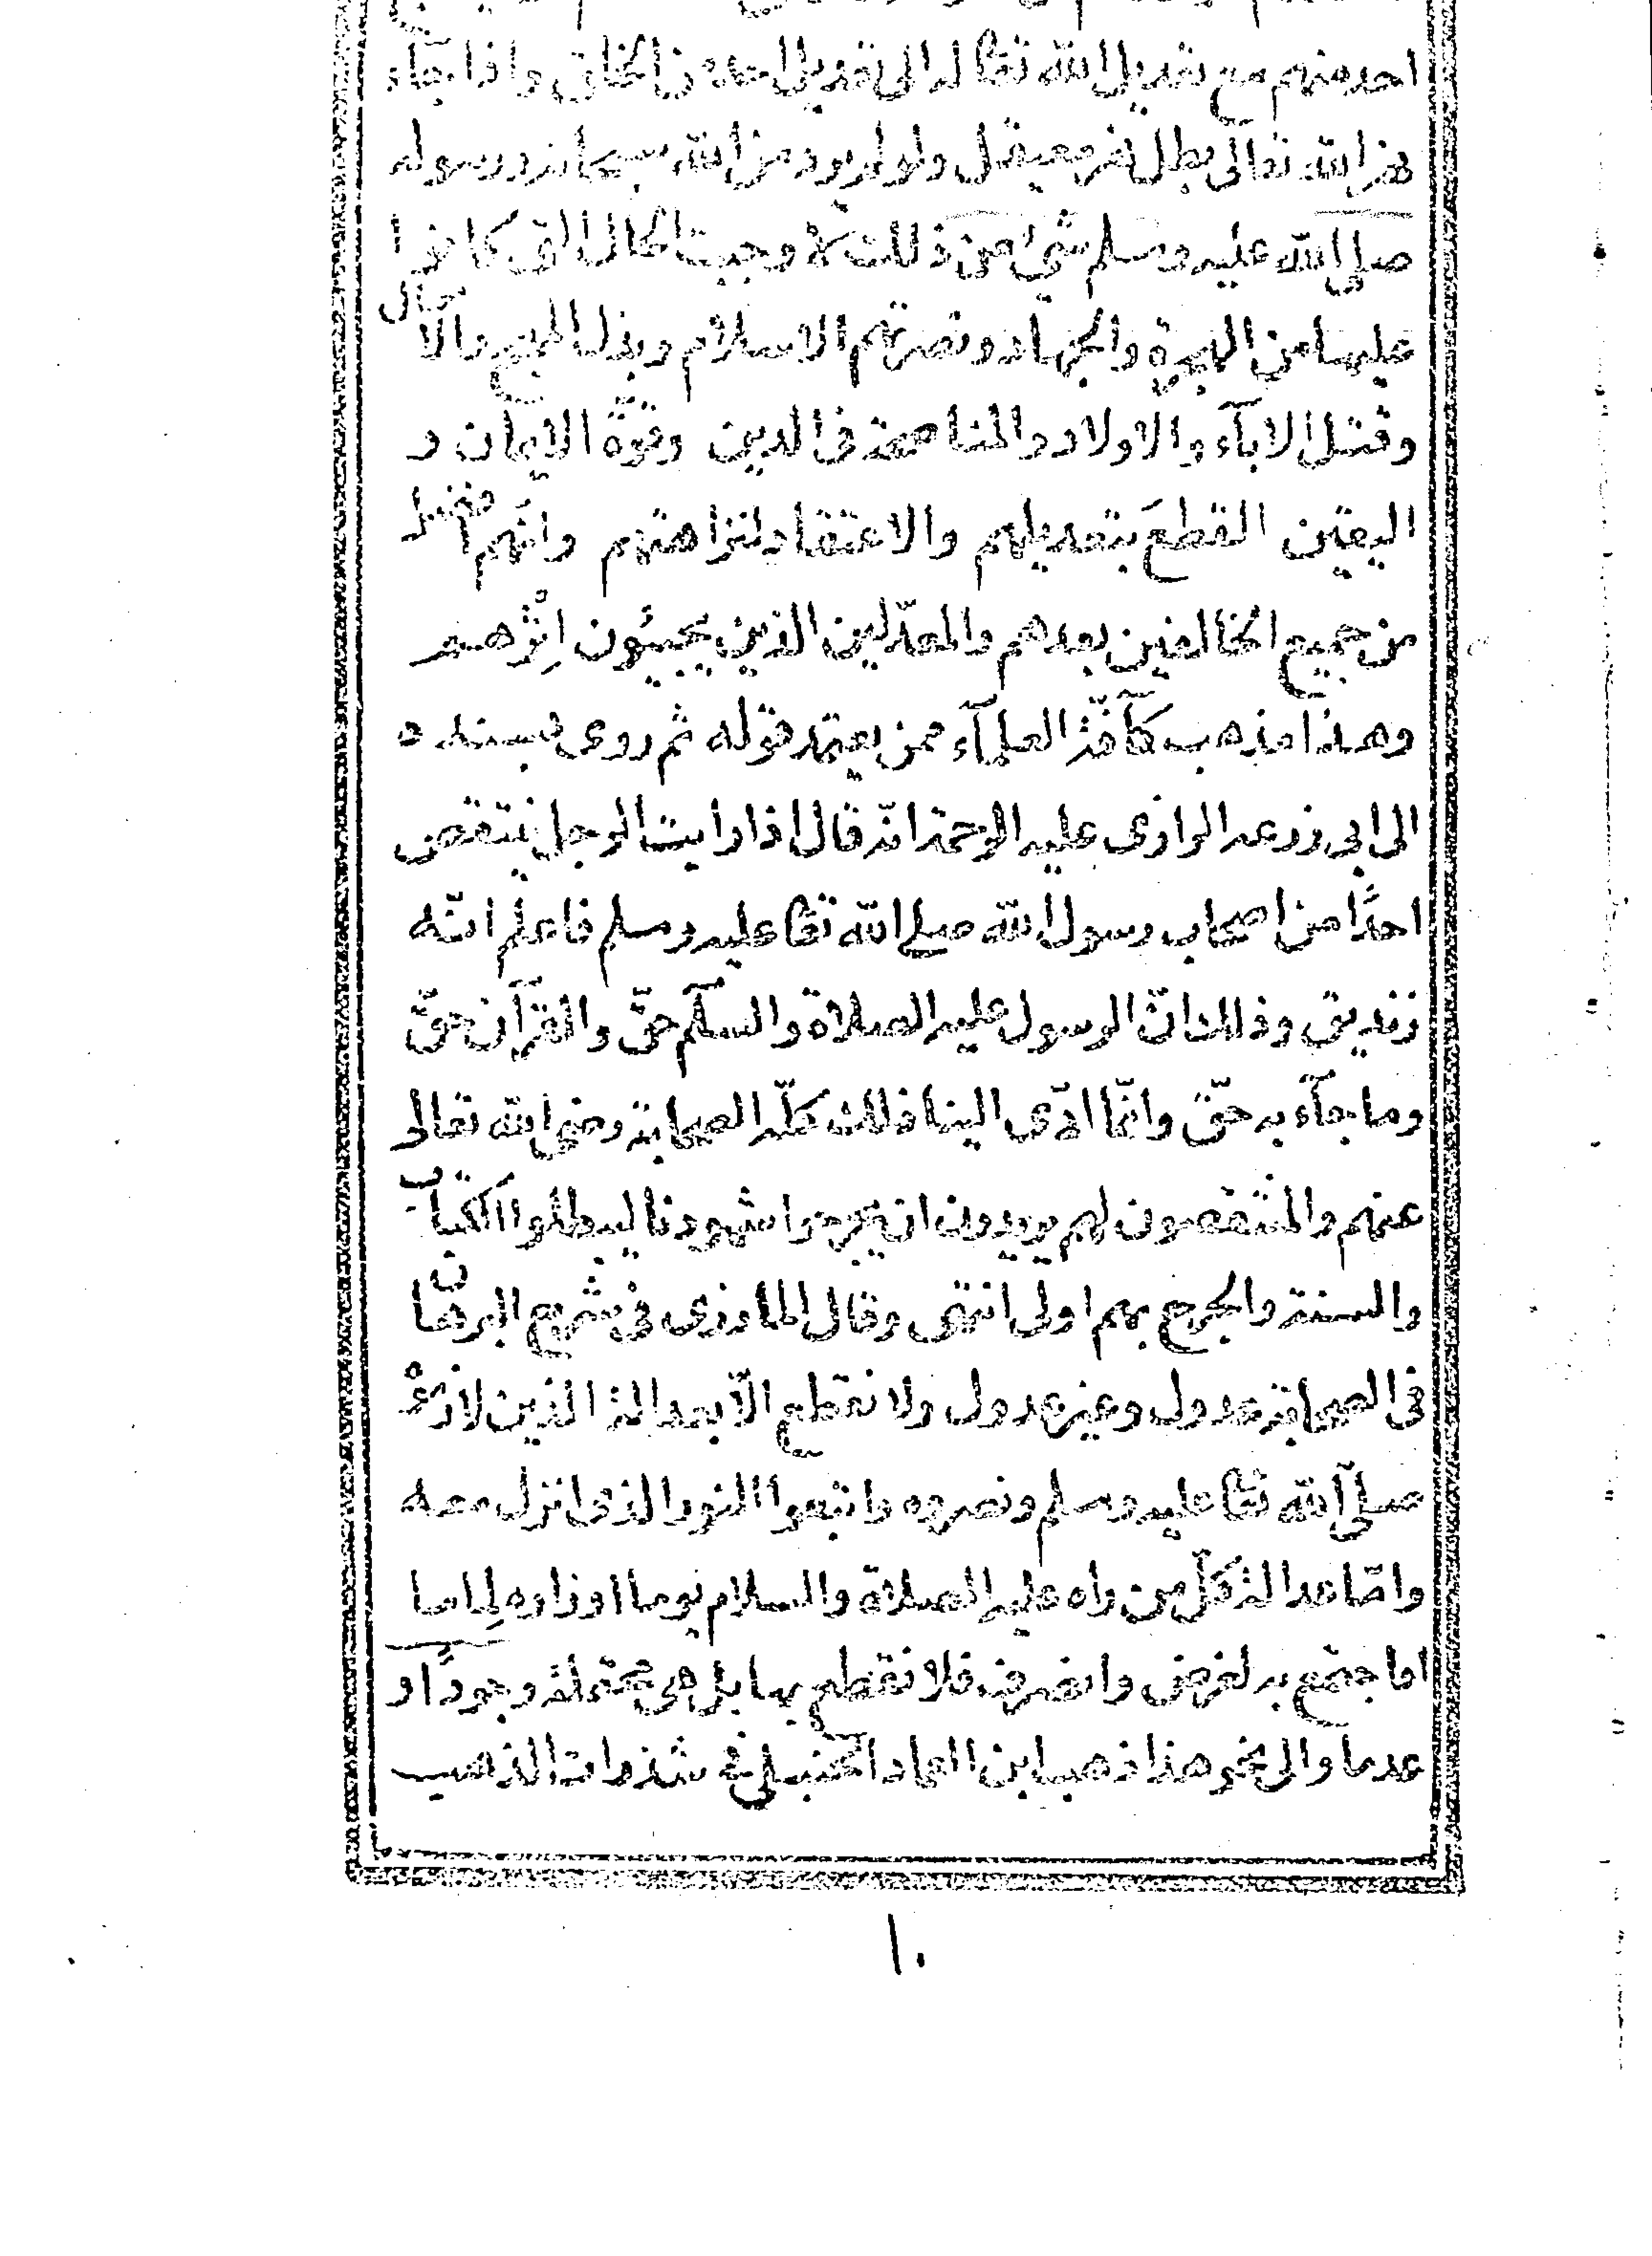 احد منهم مع تعديل الله تعا له الى تعديل احد من الخلق واذا جاء
الله تعالى بطل نهر معقل ولو لم يرد من الله سبحانه ورسوله
صلى الله عليه وسلم شئ من ذلك لا وجبت الحال التى كانوا
عليها من الهجرة والجهاد ونصرتهم الاسلام وبذل المهج والا
وقتل الابآء والاولاد والمناصحة فى الدين وقوّة الايمان و
اليقين القطعَ بتعديلهم والاعتقاد لنزاهتهم وانّهم افضل
من جميع الخالفين بعدهم والمعدّلين الذين يجيئون اِثْرهم
وهذا مذهب كآفّة العلمآء ممن يعتمد قوله ثم روى بسنده
الى ابى زرعه الرازى عليه الرحمة انّه قال اذا رايت الرجل ينتقص
احدًا من اصحاب رسول الله صلى الله تعا عليه وسلم فاعلم انّه
زنديق وذلك انّ الرسول عليه الصلاة والسلام حقّ والقرآن حقّ
وما جآء به حقّ وانّما ادّى الينا ذلك كلّه الصحابة رضى الله تعالى
عنهم والمنتقصون لهم يريدون ان يجرحوا شهودنا ليبطلوا الكتاب
والسنة والجرح بهم اولى انتهى وقال المازرى فى شرح البرهان
فى الصحابة عدول وغير عدول ولا نقطع الّا بعدالة الذين لازموه
صلى الله تعا عليه وسلم ونصروه واتبعوا النور الذى انزل معه
وامّا عدالة كلّ من راه عليه الصلاة والسلام يوما او زاره لِماما
اما جتمع به لغرض وانصرف فلا نقطع بها بل هى محتملة وجودًا و
عدما والى نحو هذا ذهب ابن العماد الحنبلى فى شذرات الذهب
١٠